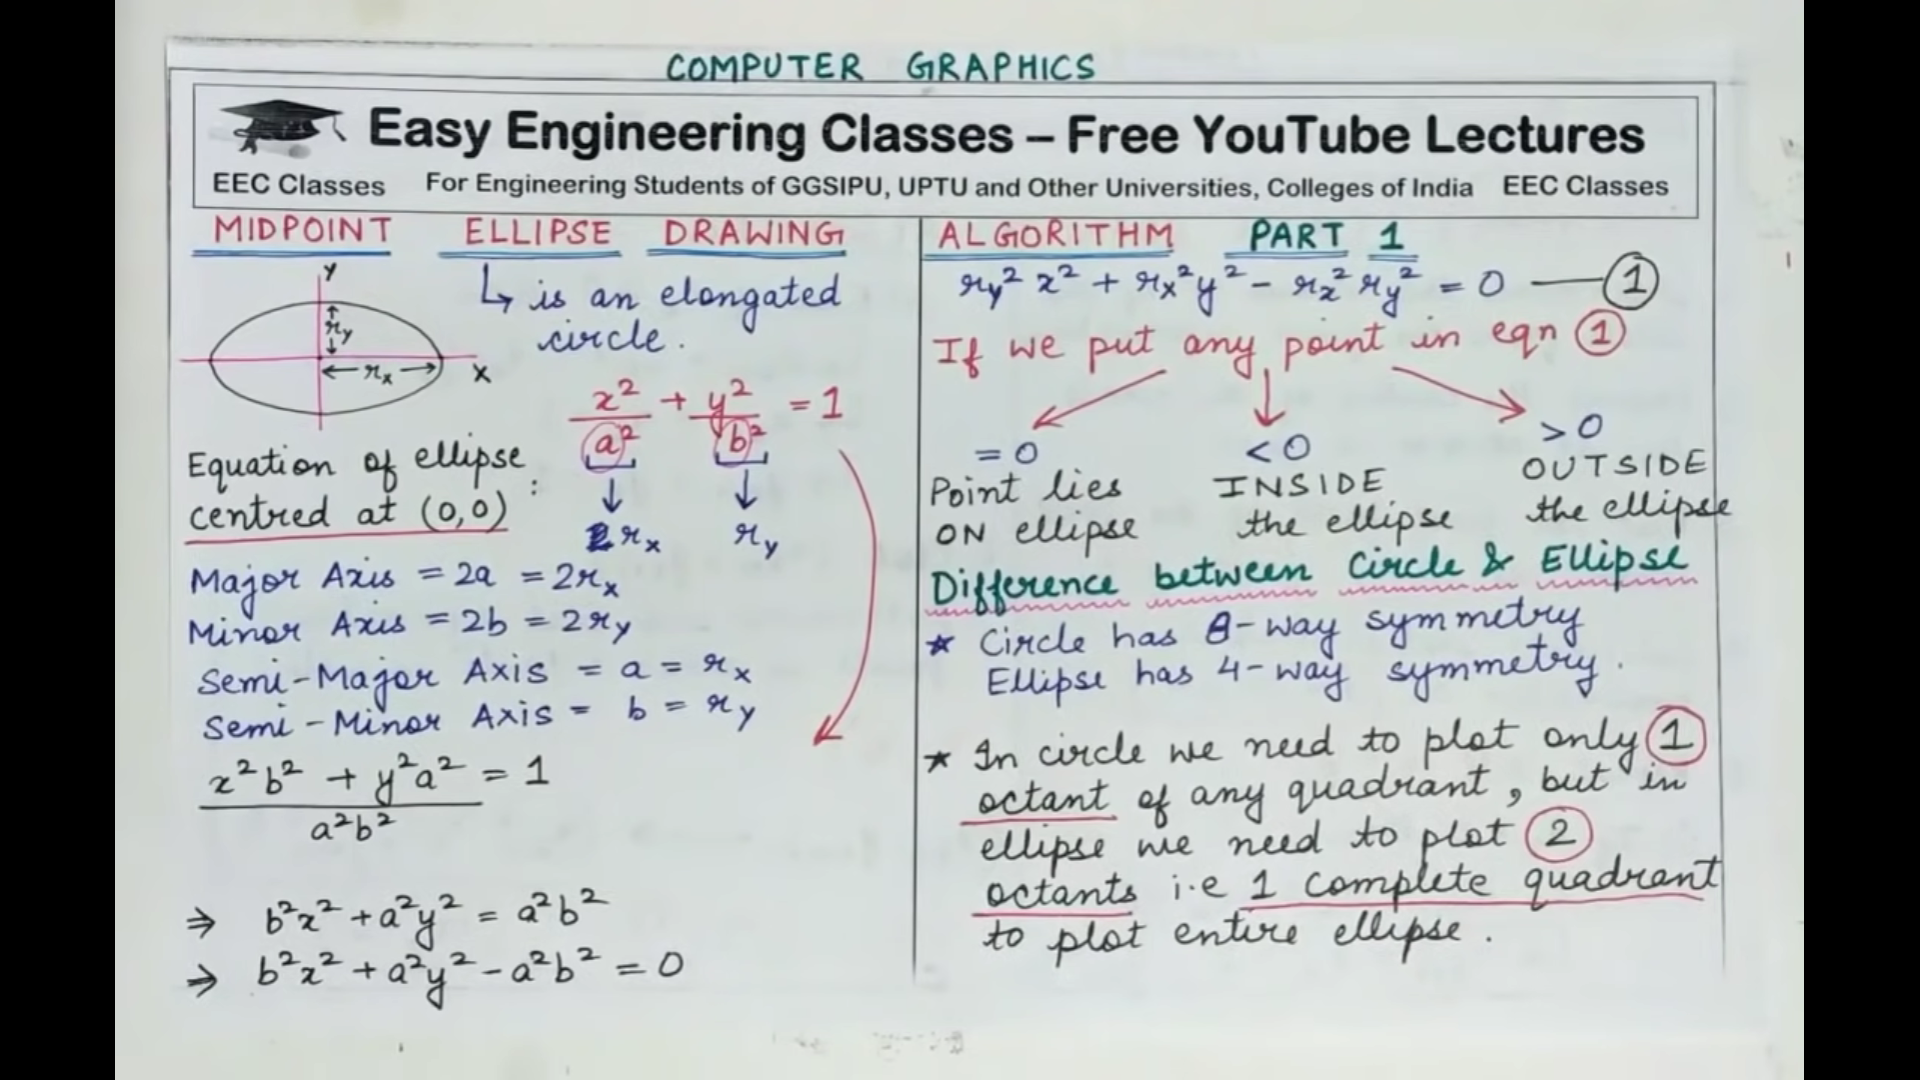 COMPUTER GRAPHICS
Easy Engineering Classes – Free YouTube Lectures
EEC Classes For Engineering Students of GGSIPU, UPTU and Other Universities, Colleges of India EEC Classes
MIDPOINT ELLIPSE DRAWING ALGORITHM PART 1
↳ is an elongated
circle.
y
ry
rx
x
x²/a² + y²/b² = 1
↓ ↓
rx ry
Equation of ellipse
centred at (0,0) :
Major Axis = 2a = 2rx
Minor Axis = 2b = 2ry
Semi-Major Axis = a = rx
Semi-Minor Axis = b = ry
x²b² + y²a² = 1
a²b²
⇒ b²x² + a²y² = a²b²
⇒ b²x² + a²y² - a²b² = 0
ry² x² + rx² y² - rx² ry² = 0 — 1
If we put any point in eqn 1
= 0
Point lies
ON ellipse
< 0
INSIDE
the ellipse
> 0
OUTSIDE
the ellipse
Difference between Circle & Ellipse
* Circle has 8-way symmetry
Ellipse has 4-way symmetry.
* In circle we need to plot only 1
octant of any quadrant, but in
ellipse we need to plot 2
octants i.e 1 complete quadrant
to plot entire ellipse.